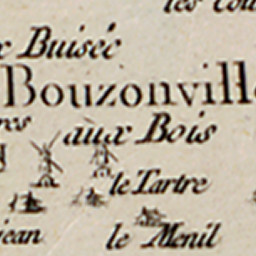 les Cou
x Buisée
Bouzonville
res
aux Bois
le Tartre
jean
le Menil